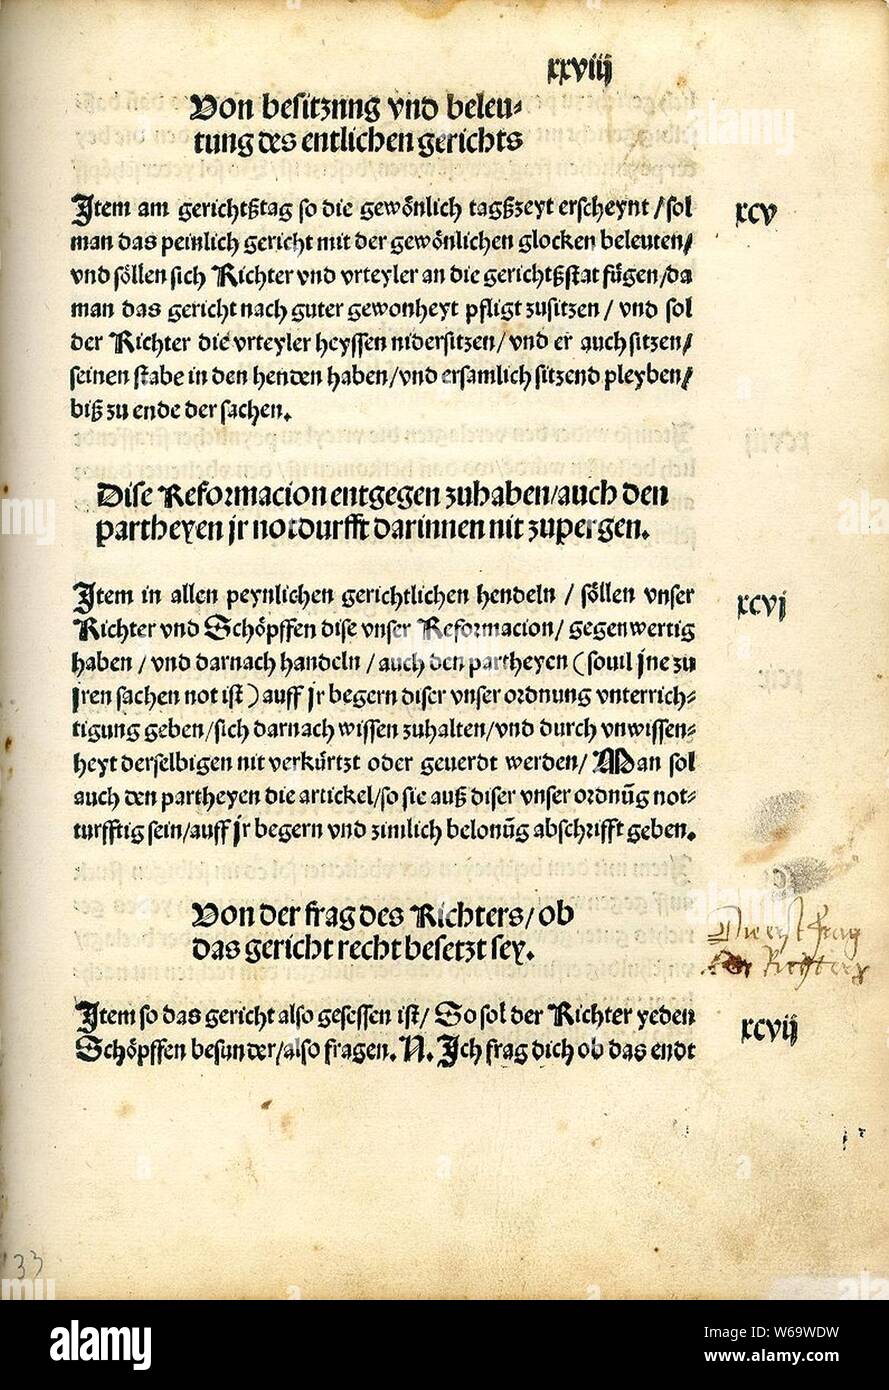 xxviij
Von besitzung vnd beleu-
tung des entlichen gerichts
Item am gerichtßtag so die gewönlich tagßzeyt erscheynt / sol
xcv
man das peinlich gericht mit der gewönlichen glocken beleuten/
vnd söllen sich Richter vnd vrteyler an die gerichtßstat fügen/da
man das gericht nach guter gewonheyt pfligt zusitzen / vnd sol
der Richter die vrteyler heyssen nidersitzen/vnd er auch sitzen/
seinen stabe in den henden haben/vnd ersamlich sitzend pleyben/
biß zu ende der sachen.
Dise Reformacion entgegen zuhaben/auch den
partheyen jr notdurfft darinnen nit zupergen.
Item in allen peynlichen gerichtlichen hendeln / söllen vnser
xcvj
Richter vnd Schöpffen dise vnser Reformacion/ gegenwertig
haben / vnd darnach handeln / auch den partheyen (souil jne zu
jren sachen not ist) auff jr begern diser vnser ordnung vnterrich-
tigung geben/sich darnach wissen zuhalten/vnd durch vnwissen-
heyt derselbigen nit verkürtzt oder geuerdt werden/ Man sol
auch den partheyen die artickel/so sie auß diser vnser ordnūg not-
turfftig sein/auff jr begern vnd zimlich belonūg abschrifft geben.
Von der frag des Richters/ ob
das gericht recht besetzt sey.
Die erst frag
des Richters
Item so das gericht also gesessen ist/ So sol der Richter yeden
xcvij
Schöpffen besunder/also fragen. N. Ich frag dich ob das endt
33
alamy
alamy
Image ID: W69WDW
www.alamy.com